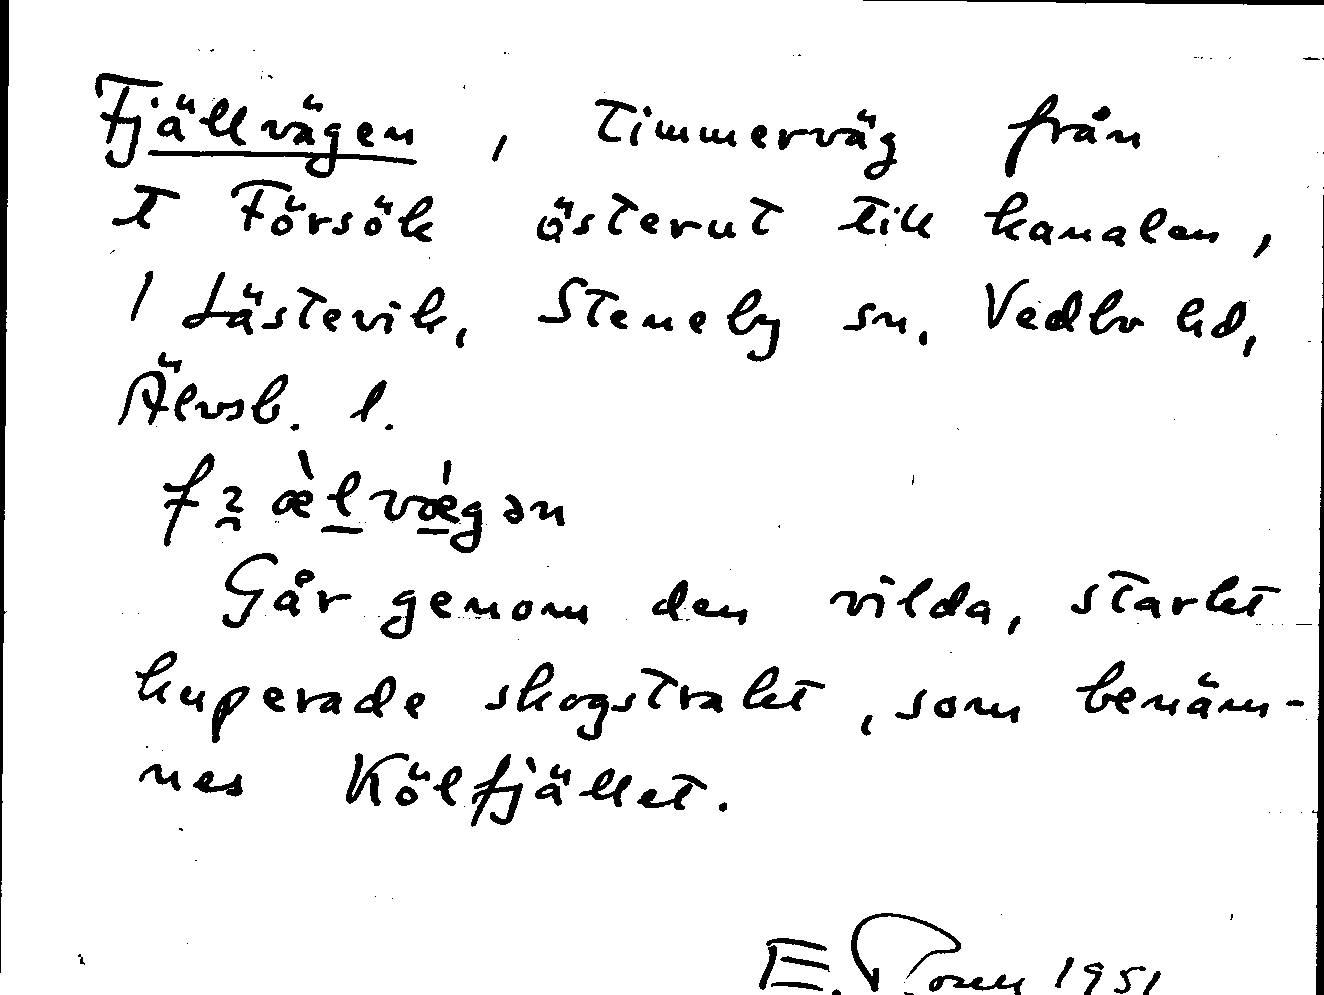 Fjällvägen, timmerväg från
t Försök österut till kanalen,
i Låstevik, Steneby sn, Vedbo hd,
Älvsb. l.
Går genom den vilda, starkt
kuperade skogstrakt, som benäm-
nes Kölfjället.
E. 1951